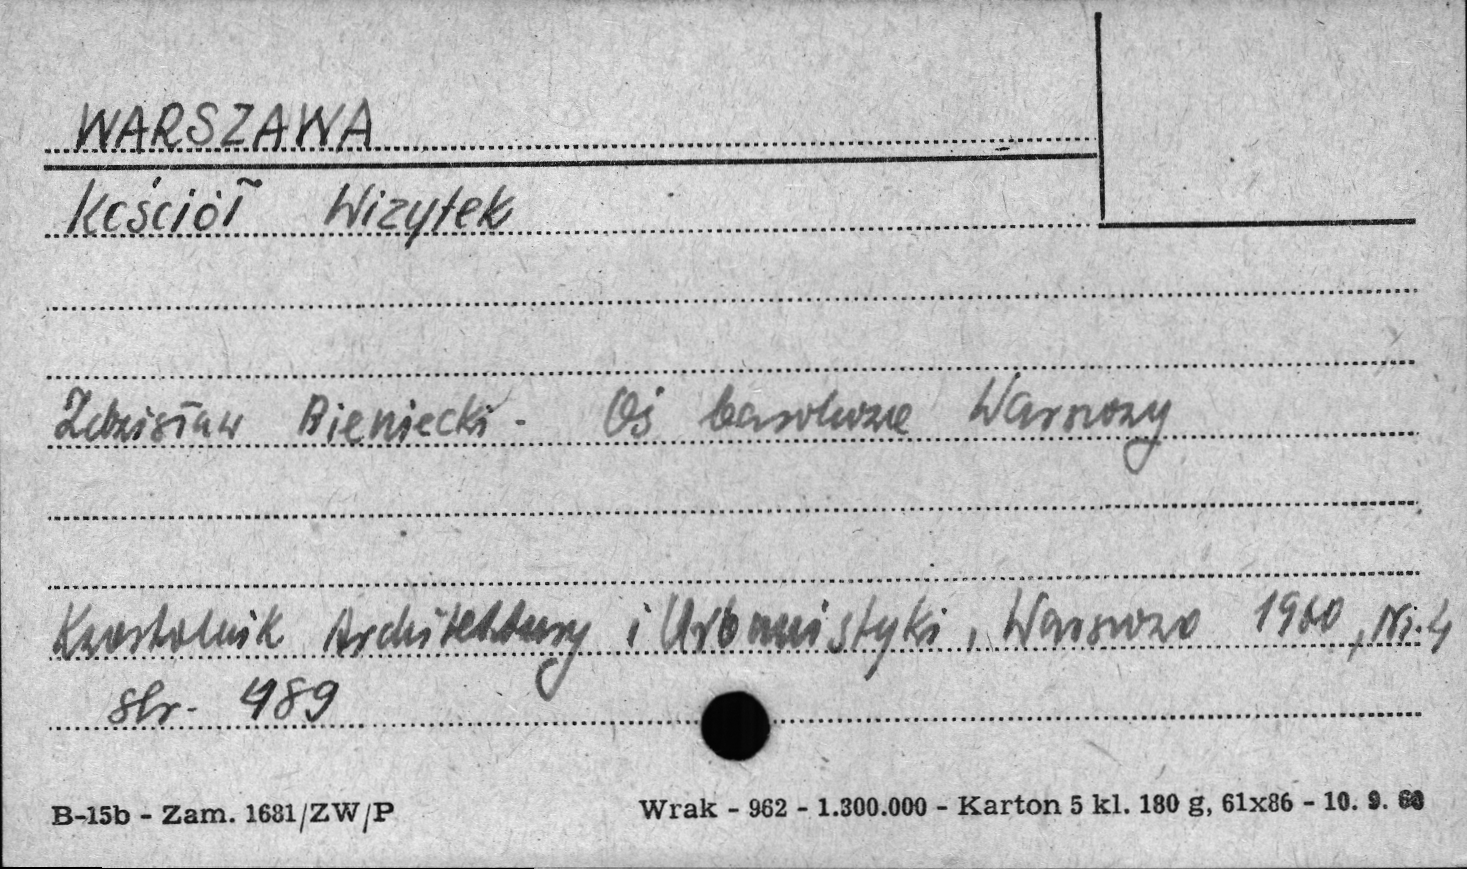 WARSZAWA
Kościół Wizytek
Zdzisław Bieniecki - Oś barokowa Warszawy
Kwartalnik Architektury i Urbanistyki, Warszawa 1960, Nr. 4
str. 489
B-15b - Zam. 1681/ZW/P
Wrak - 962 - 1.300.000 - Karton 5 kl. 180 g, 61x86 - 10. 9. 60